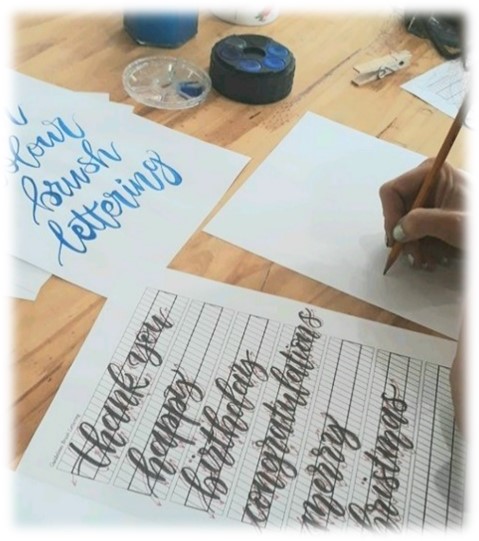 olour
brush
lettering
thank you
happy
birthday
congratulations
merry
hristmas